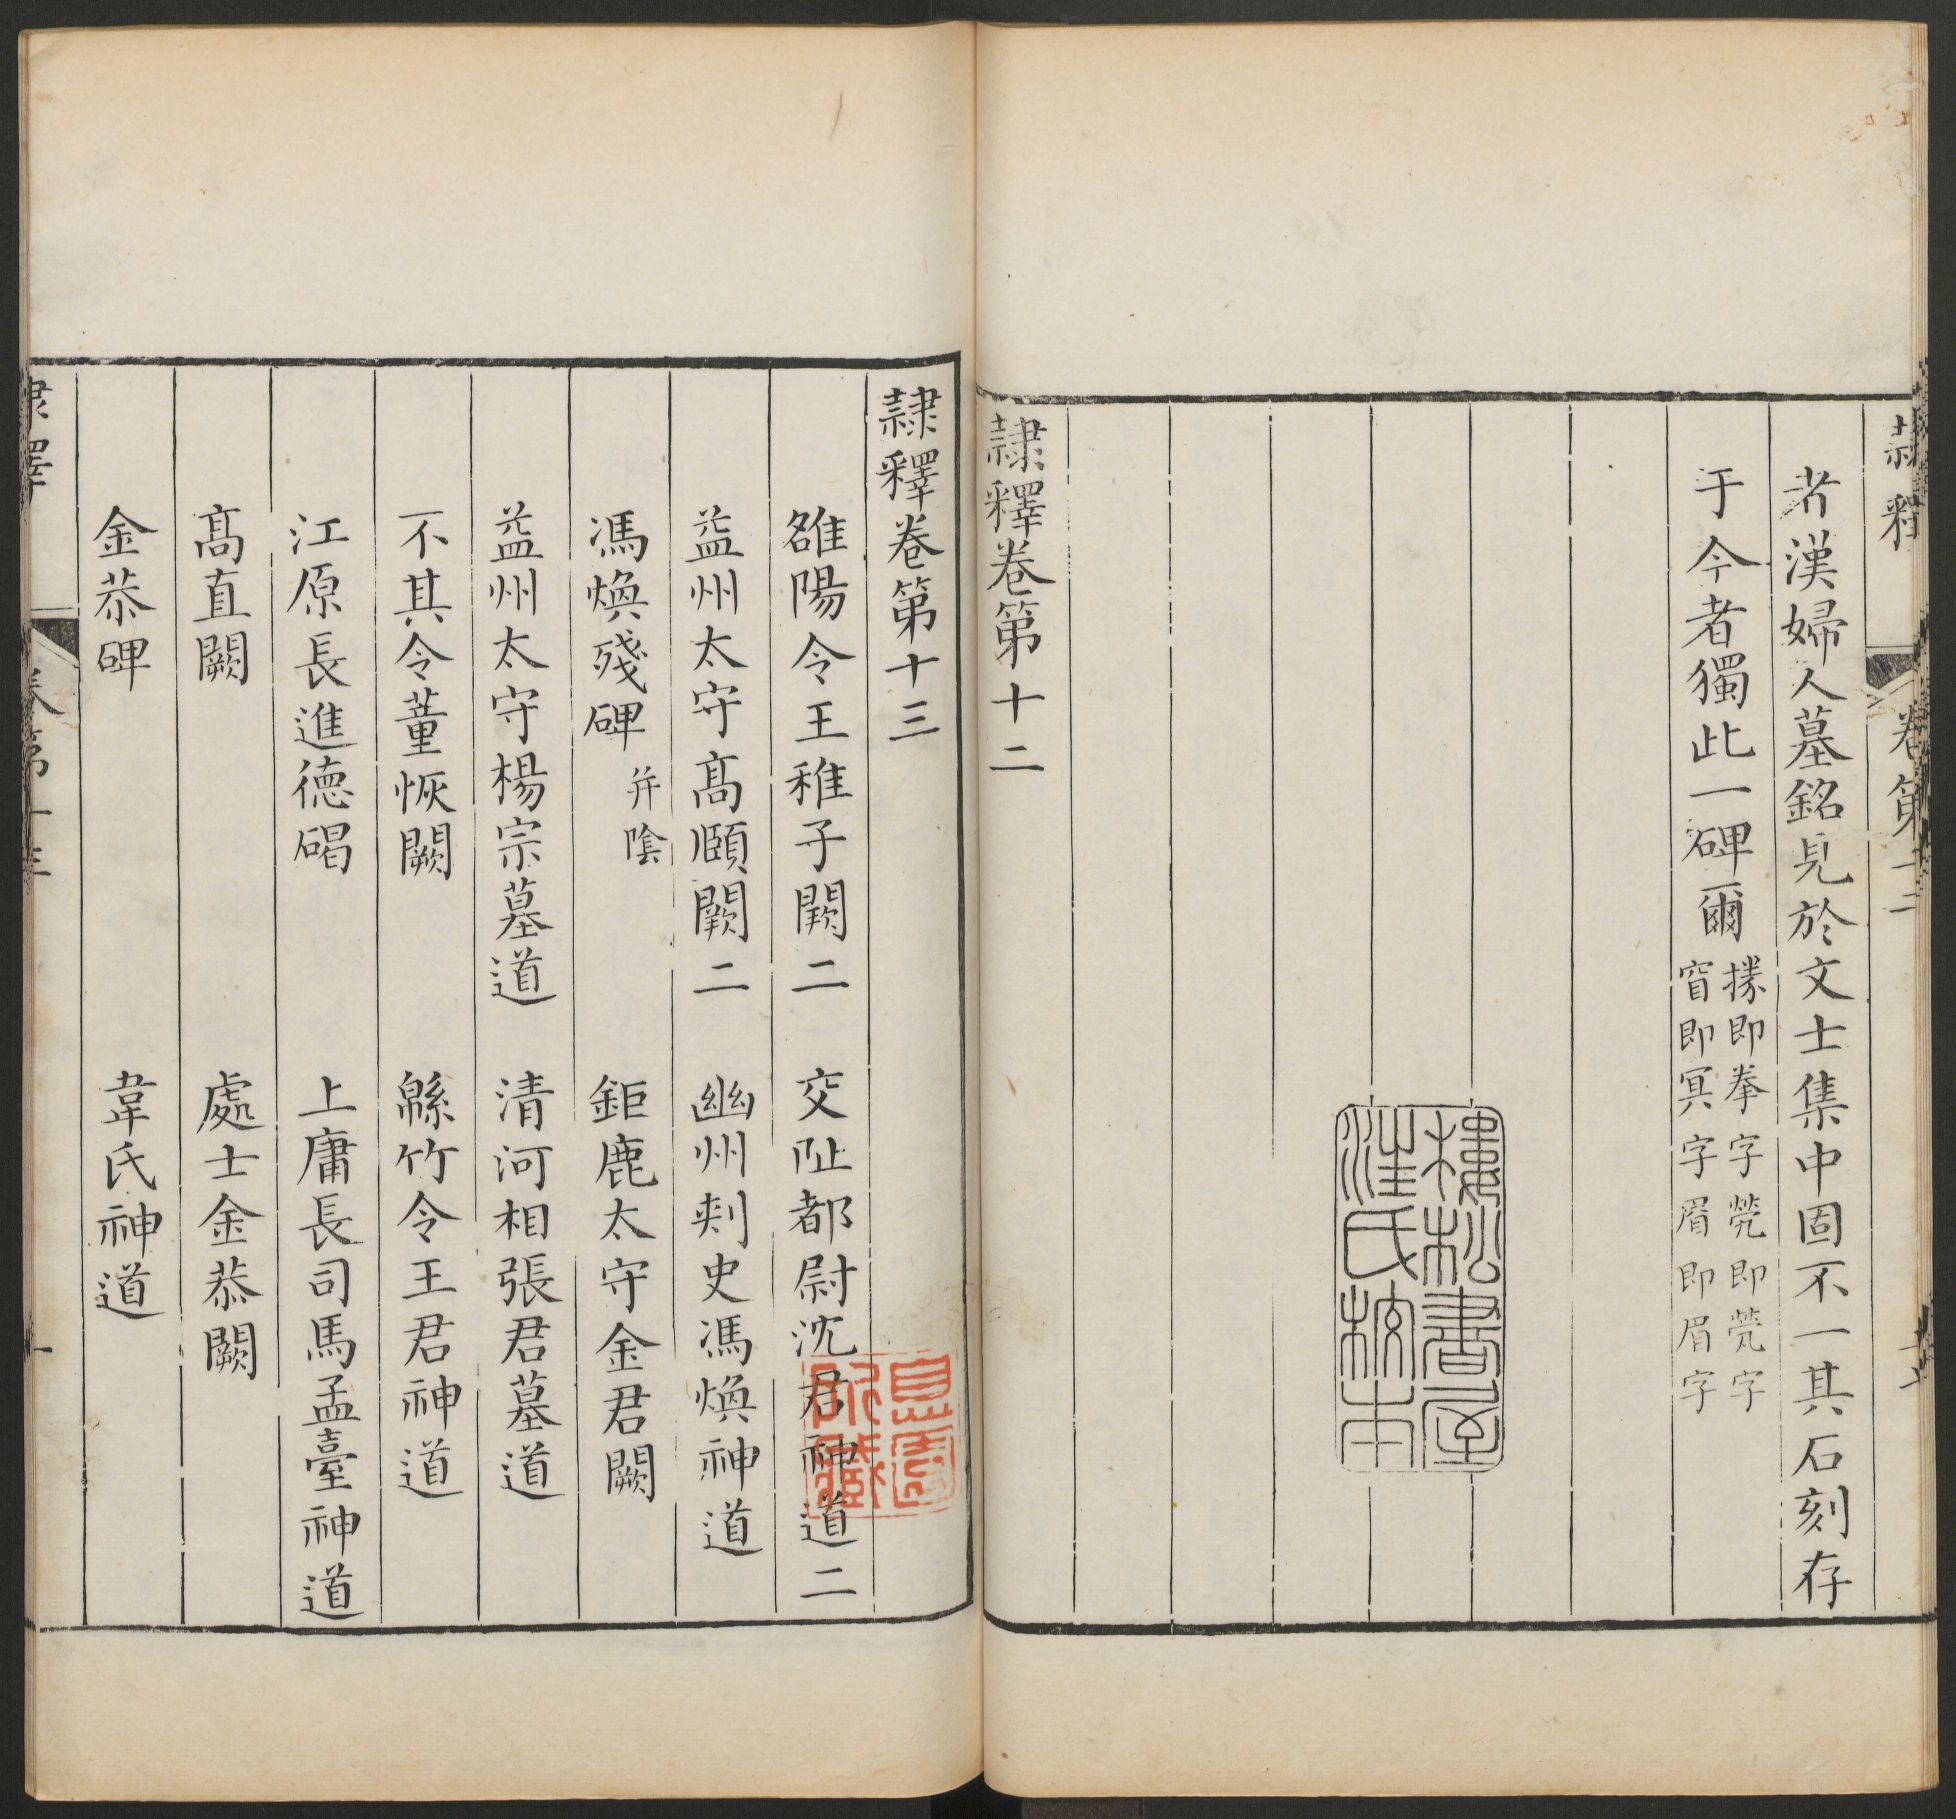 隸釋 卷第十二
者漢婦人墓銘見於文士集中固不一其石刻存
于今者獨此一碑爾
搽即拳字㼆即甍字
窅即冥字眉即眉字
樓松書屋
汪氏校本
隸釋卷第十二
隸釋卷第十三
雒陽令王稚子闕二 交阯都尉沈君神道二
益州太守高頤闕二 幽州刺史馮煥神道
馮煥殘碑并陰 鉅鹿太守金君闕
益州太守楊宗墓道 清河相張君墓道
不其令董恢闕 緜竹令王君神道
江原長進德碣 上庸長司馬孟臺神道
高直闕 處士金恭闕
金恭碑 韋氏神道
隸釋 卷第十三 一